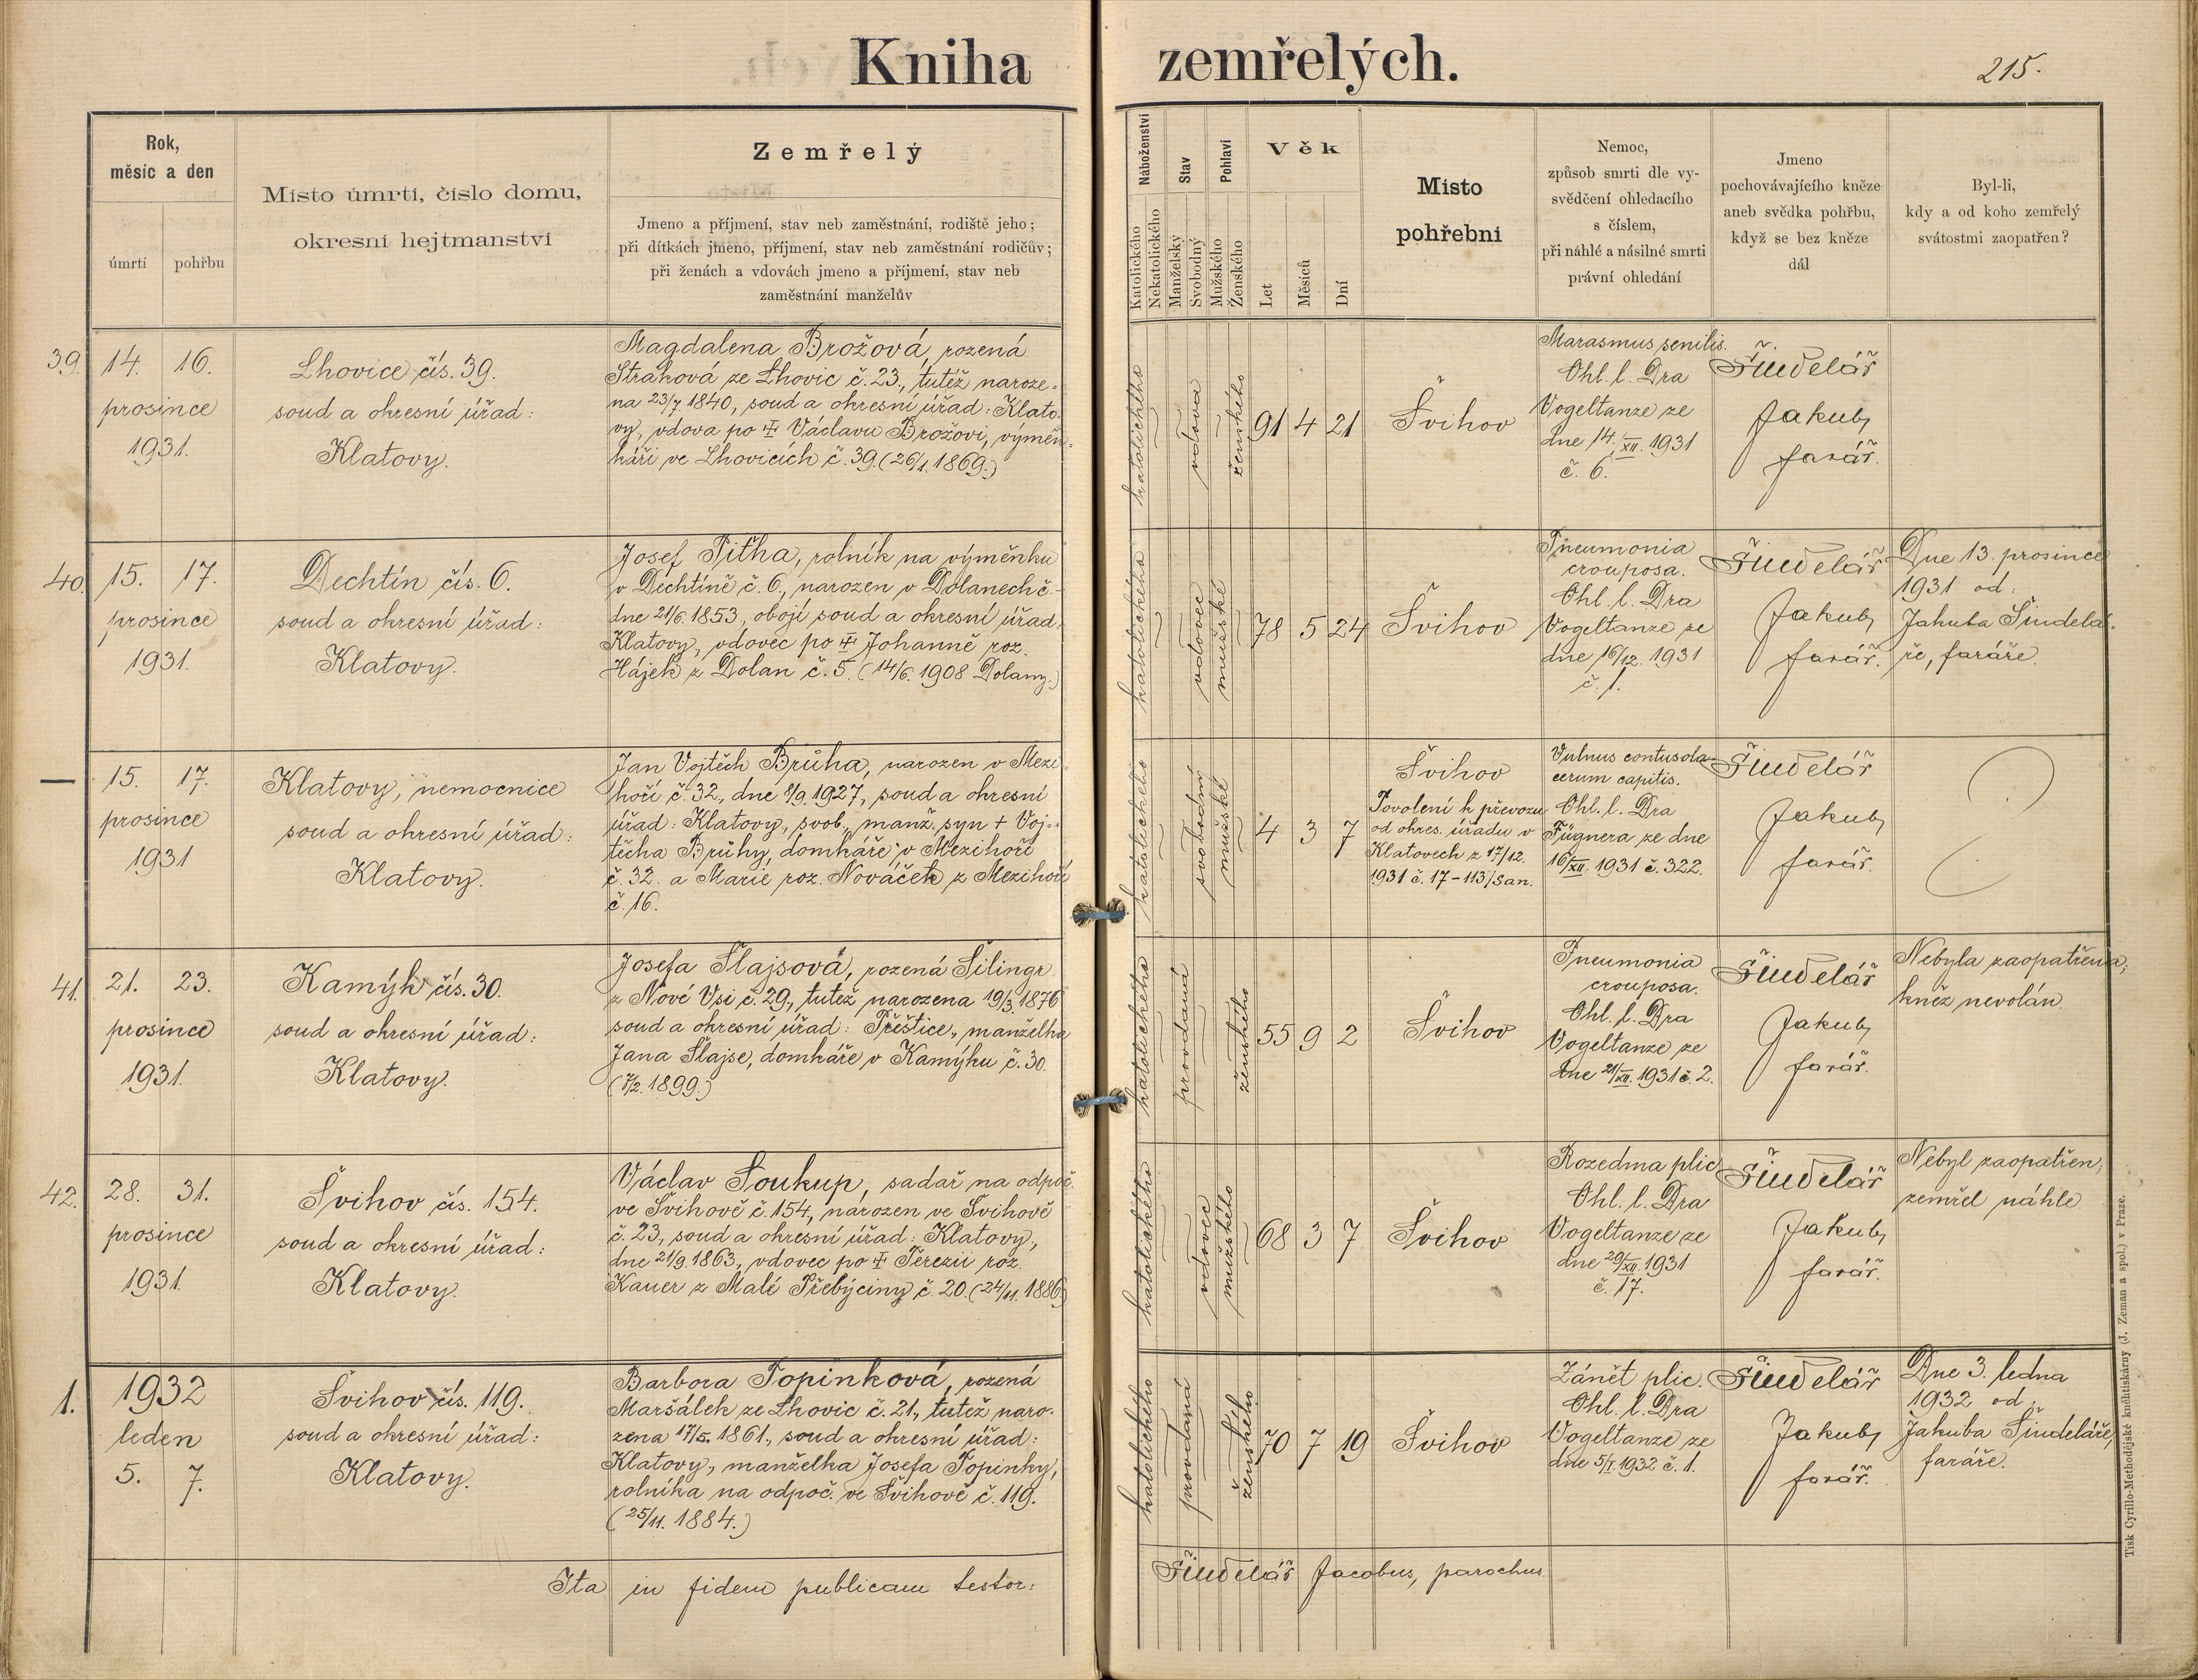 Kniha zemřelých.
215.
Rok,
měsíc a den
úmrtí
pohřbu
Místo úmrtí, číslo domu,
okresní hejtmanství
Zemřelý
Jmeno a příjmení, stav neb zaměstnání, rodiště jeho;
při dítkách jmeno, příjmení, stav neb zaměstnání rodičův;
při ženách a vdovách jmeno a příjmení, stav neb
zaměstnání manželův
Náboženství
Katolického
Nekatolického
Stav
Manželský
Svobodný
Pohlaví
Mužského
Ženského
Věk
Let
Měsíců
Dní
Místo
pohřební
Nemoc,
způsob smrti dle vy-
svědčení ohledacího
s číslem,
při náhlé a násilné smrti
právní ohledání
Jmeno
pochovávajícího kněze
aneb svědka pohřbu,
když se bez kněze
dál
Byl-li,
kdy a od koho zemřelý
svátostmi zaopatřen?
39.
14. 16.
prosince
1931.
Lhovice čís. 39.
soud a okresní úřad:
Klatovy.
Magdalena Brožová, rozená
Straková ze Lhovic č. 23., tutéž naroze-
na 23/7. 1840, soud a okresní úřad: Klato-
vy, vdova po ‡ Václavu Brožovi, výměn-
káři ve Lhovicích č. 39. (26/1. 1869.)
katolického
vdova
ženského
91 4 21
Švihov
Marasmus senilis.
Ohl. l. Dra
Vogeltanze ze
dne 14./XII. 1931
č. 6.
Šindelář
Jakub,
farář.
40.
15. 17.
prosince
1931.
Dechtín čís. 6.
soud a okresní úřad:
Klatovy.
Josef Piťha, rolník na výměnku
v Dechtíně č. 6., narozen v Dolanech č. -
dne 21/6. 1853, obojí soud a okresní úřad:
Klatovy, vdovec po ‡ Johanně roz.
Hájek z Dolan č. 5. (14/6. 1908 Dolany.)
katolického
vdovec
mužské
78 5 24
Švihov
Pneumonia
crouposa.
Ohl. l. Dra
Vogeltanze ze
dne 16/12. 1931
č. 1.
Šindelář
Jakub,
farář.
Dne 13. prosince
1931 od:
Jakuba Šindelá-
ře, faráře.
—
15. 17.
prosince
1931
Klatovy, nemocnice
soud a okresní úřad:
Klatovy.
Jan Vojtěch Brůha, narozen v Mezi
hoří č. 32, dne 8/9. 1927, soud a okresní
úřad: Klatovy, svob., manž. syn + Voj-
těcha Brůhy, domkáře v Mezihoří
č. 32. a Marie roz. Nováček z Mezihoří
č. 16.
katolického
svobodný
mužské
4 3 7
Švihov
Povolení k převozu
od okres. úřadu v
Klatovech z 17/12.
1931 č. 17-113/San.
Vulnus contusola-
cerum capitis.
Ohl. l. Dra
Fügnera ze dne
16/XII. 1931 č. 322.
Šindelář
Jakub,
farář.
41.
21. 23.
prosince
1931.
Kamýk čís. 30.
soud a okresní úřad:
Klatovy.
Josefa Šlajsová, rozená Šilingr
z Nové Vsi č. 29., tutéž narozena 19/3. 1876
soud a okresní úřad: Přeštice, manželka
Jana Šlajse, domkáře v Kamýku č. 30.
(7/2. 1899.)
katolického
provdaná
ženského
55 9 2
Švihov
Pneumonia
crouposa.
Ohl. l. Dra
Vogeltanze ze
dne 21/XII. 1931 č. 2.
Šindelář
Jakub,
farář.
Nebyla zaopatřena,
kněz nevolán.
42.
28. 31.
prosince
1931.
Švihov čís. 154.
soud a okresní úřad:
Klatovy.
Václav Soukup, sadař na odpoč.
ve Švihově č. 154, narozen ve Švihově
č. 23, soud a okresní úřad: Klatovy,
dne 21/9. 1863, vdovec po ‡ Terezii roz.
Kauer z Malé Přebýciny č. 20. (24/11. 1886)
katolického
vdovec
mužského
68 3 7
Švihov
Rozedma plic
Ohl. l. Dra
Vogeltanze ze
dne 29/XII. 1931
č. 17.
Šindelář
Jakub,
farář.
Nebyl zaopatřen,
zemřel náhle.
1.
1932
leden
5. 7.
Švihov čís. 119.
soud a okresní úřad:
Klatovy.
Barbora Topinková, rozená
Maršálek ze Lhovic č. 21., tutéž naro-
zena 17/5. 1861., soud a okresní úřad:
Klatovy, manželka Josefa Topinky,
rolníka na odpoč. ve Švihově č. 119.
(25/11. 1884.)
katolického
provdaná
ženského
70 7 19
Švihov
Zánět plic.
Ohl. l. Dra
Vogeltanze ze
dne 5/I. 1932 č. 1.
Šindelář
Jakub,
farář.
Dne 3. ledna
1932 od:
Jakuba Šindeláře,
faráře.
Ita in fidem publicam testor: Šindelář Jacobus, parochus
Tisk Cyrillo-Methodějské knihtiskárny (J. Zeman a spol.) v Praze.